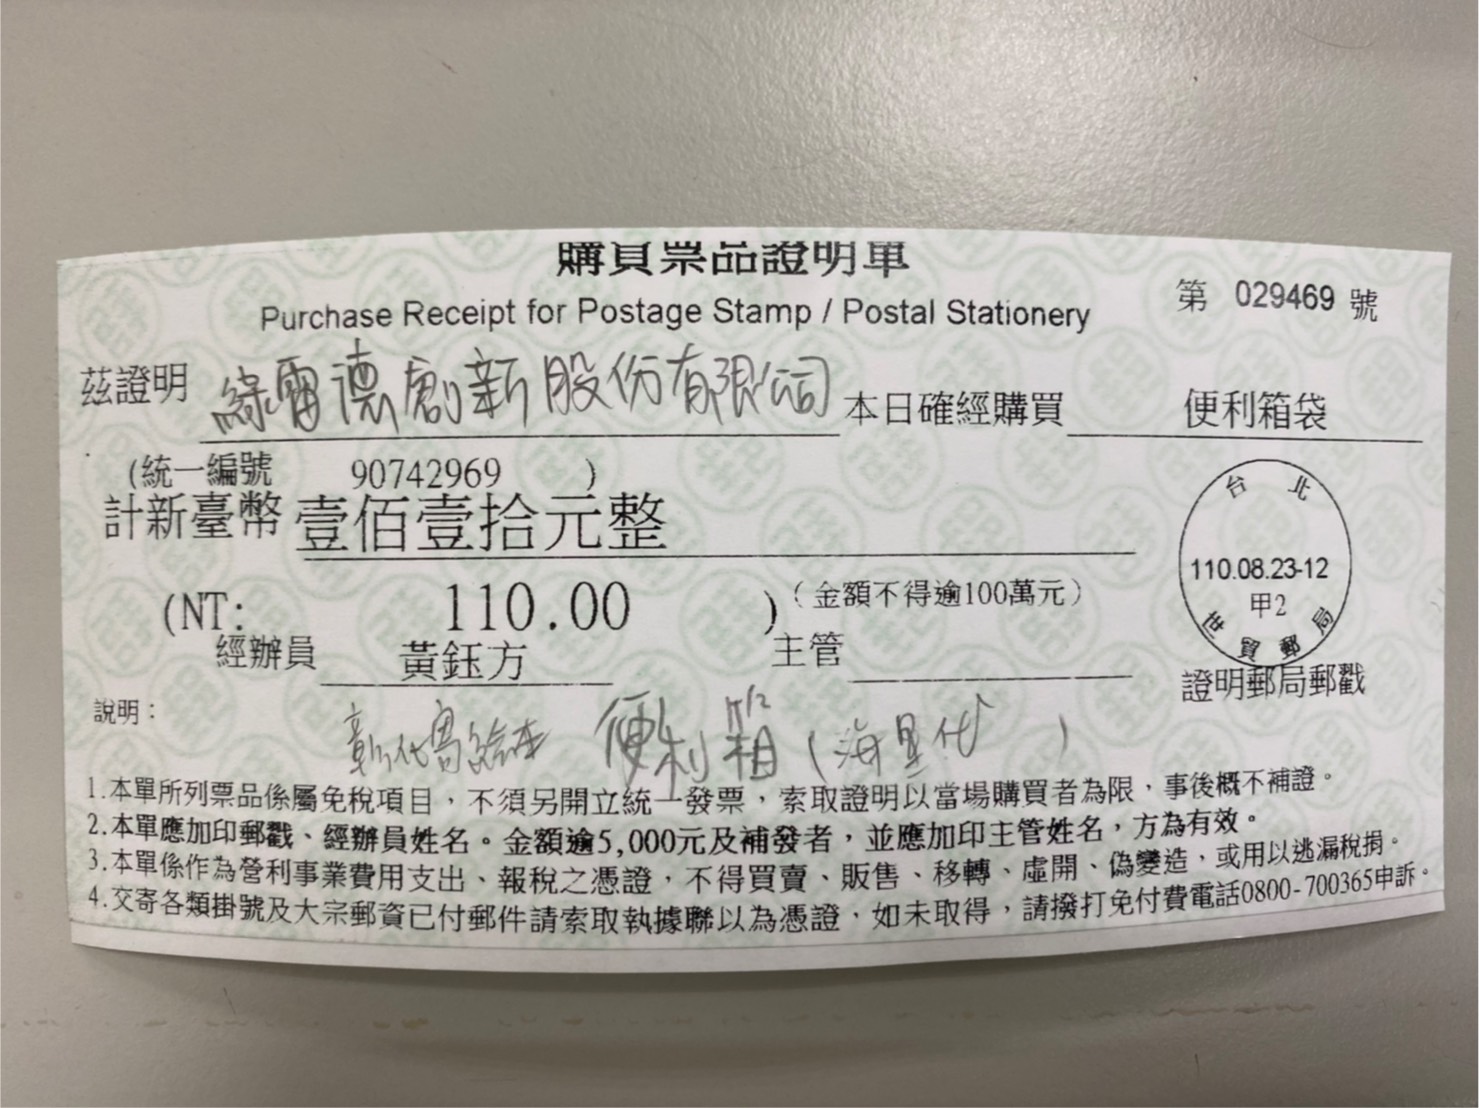 購買票品證明單
Purchase Receipt for Postage Stamp / Postal Stationery
第 029469 號
茲證明 綠雷德創新股份有限公司 本日確經購買 便利箱袋
(統一編號 90742969 )
計新臺幣 壹佰壹拾元整
(NT: 110.00 ) (金額不得逾100萬元)
經辦員 黃鈺方 主管
台北
110.08.23-12
甲2
世貿郵局
證明郵局郵戳
說明：
便利箱 (海星代 )
1.本單所列票品係屬免稅項目，不須另開立統一發票，索取證明以當場購買者為限，事後概不補證。
2.本單應加印郵戳、經辦員姓名。金額逾5,000元及補發者，並應加印主管姓名，方為有效。
3.本單係作為營利事業費用支出、報稅之憑證，不得買賣、販售、移轉、虛開、偽變造，或用以逃漏稅捐。
4.交寄各類掛號及大宗郵資已付郵件請索取執據聯以為憑證，如未取得，請撥打免付費電話0800-700365申訴。